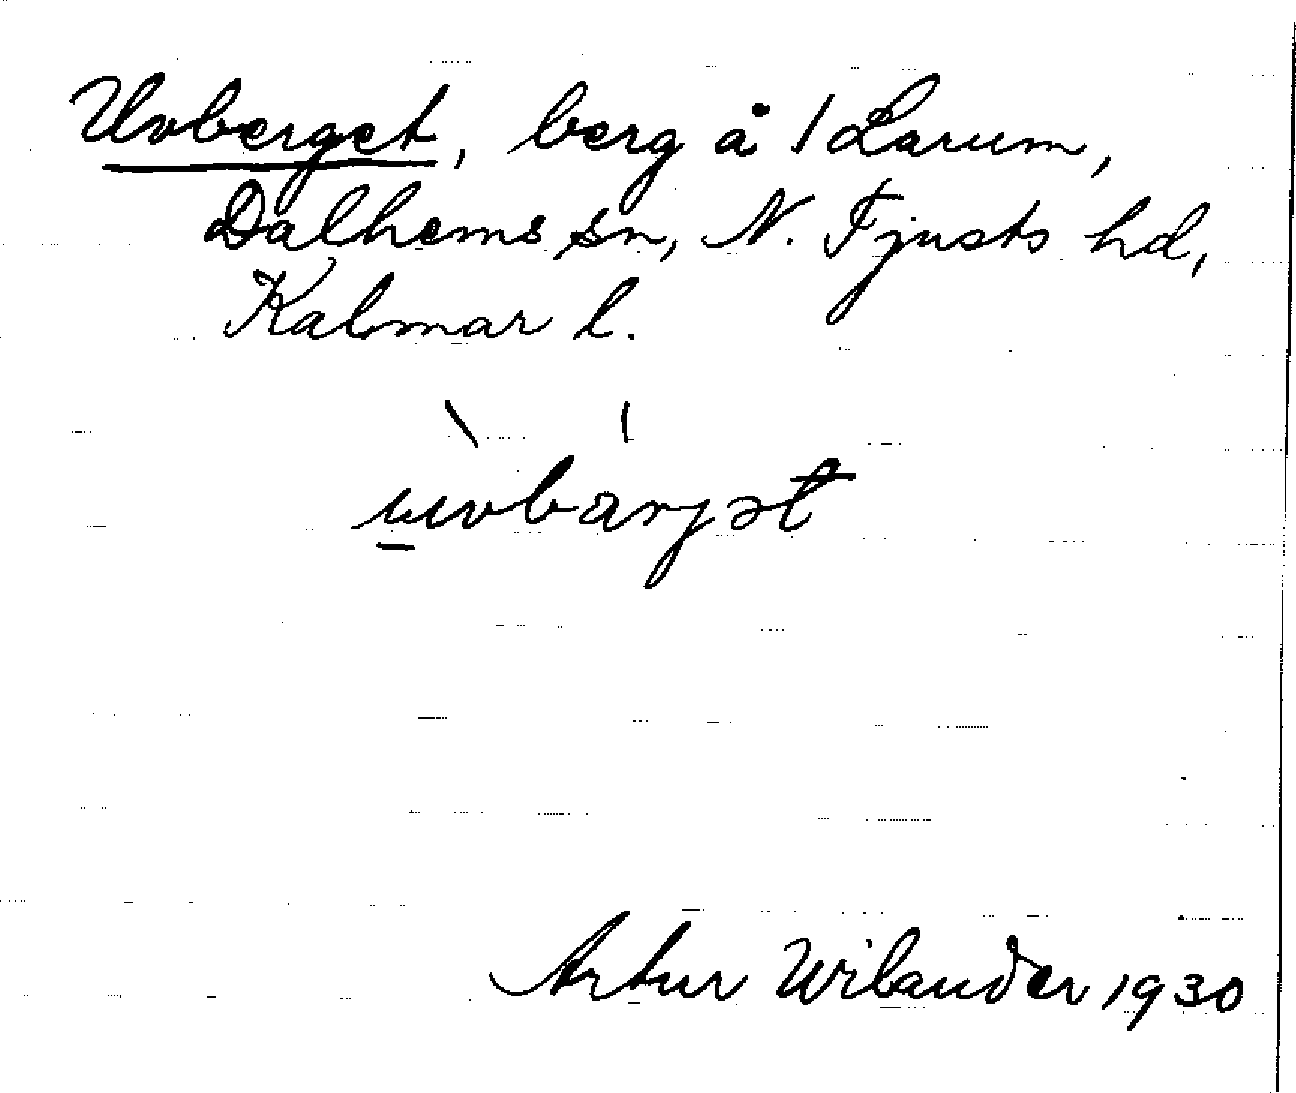 Uvberget, berg å 1 Larum,
Dalhems sn, N. Tjusts hd,
Kalmar l.
uvbärjət
Artur Wilander 1930